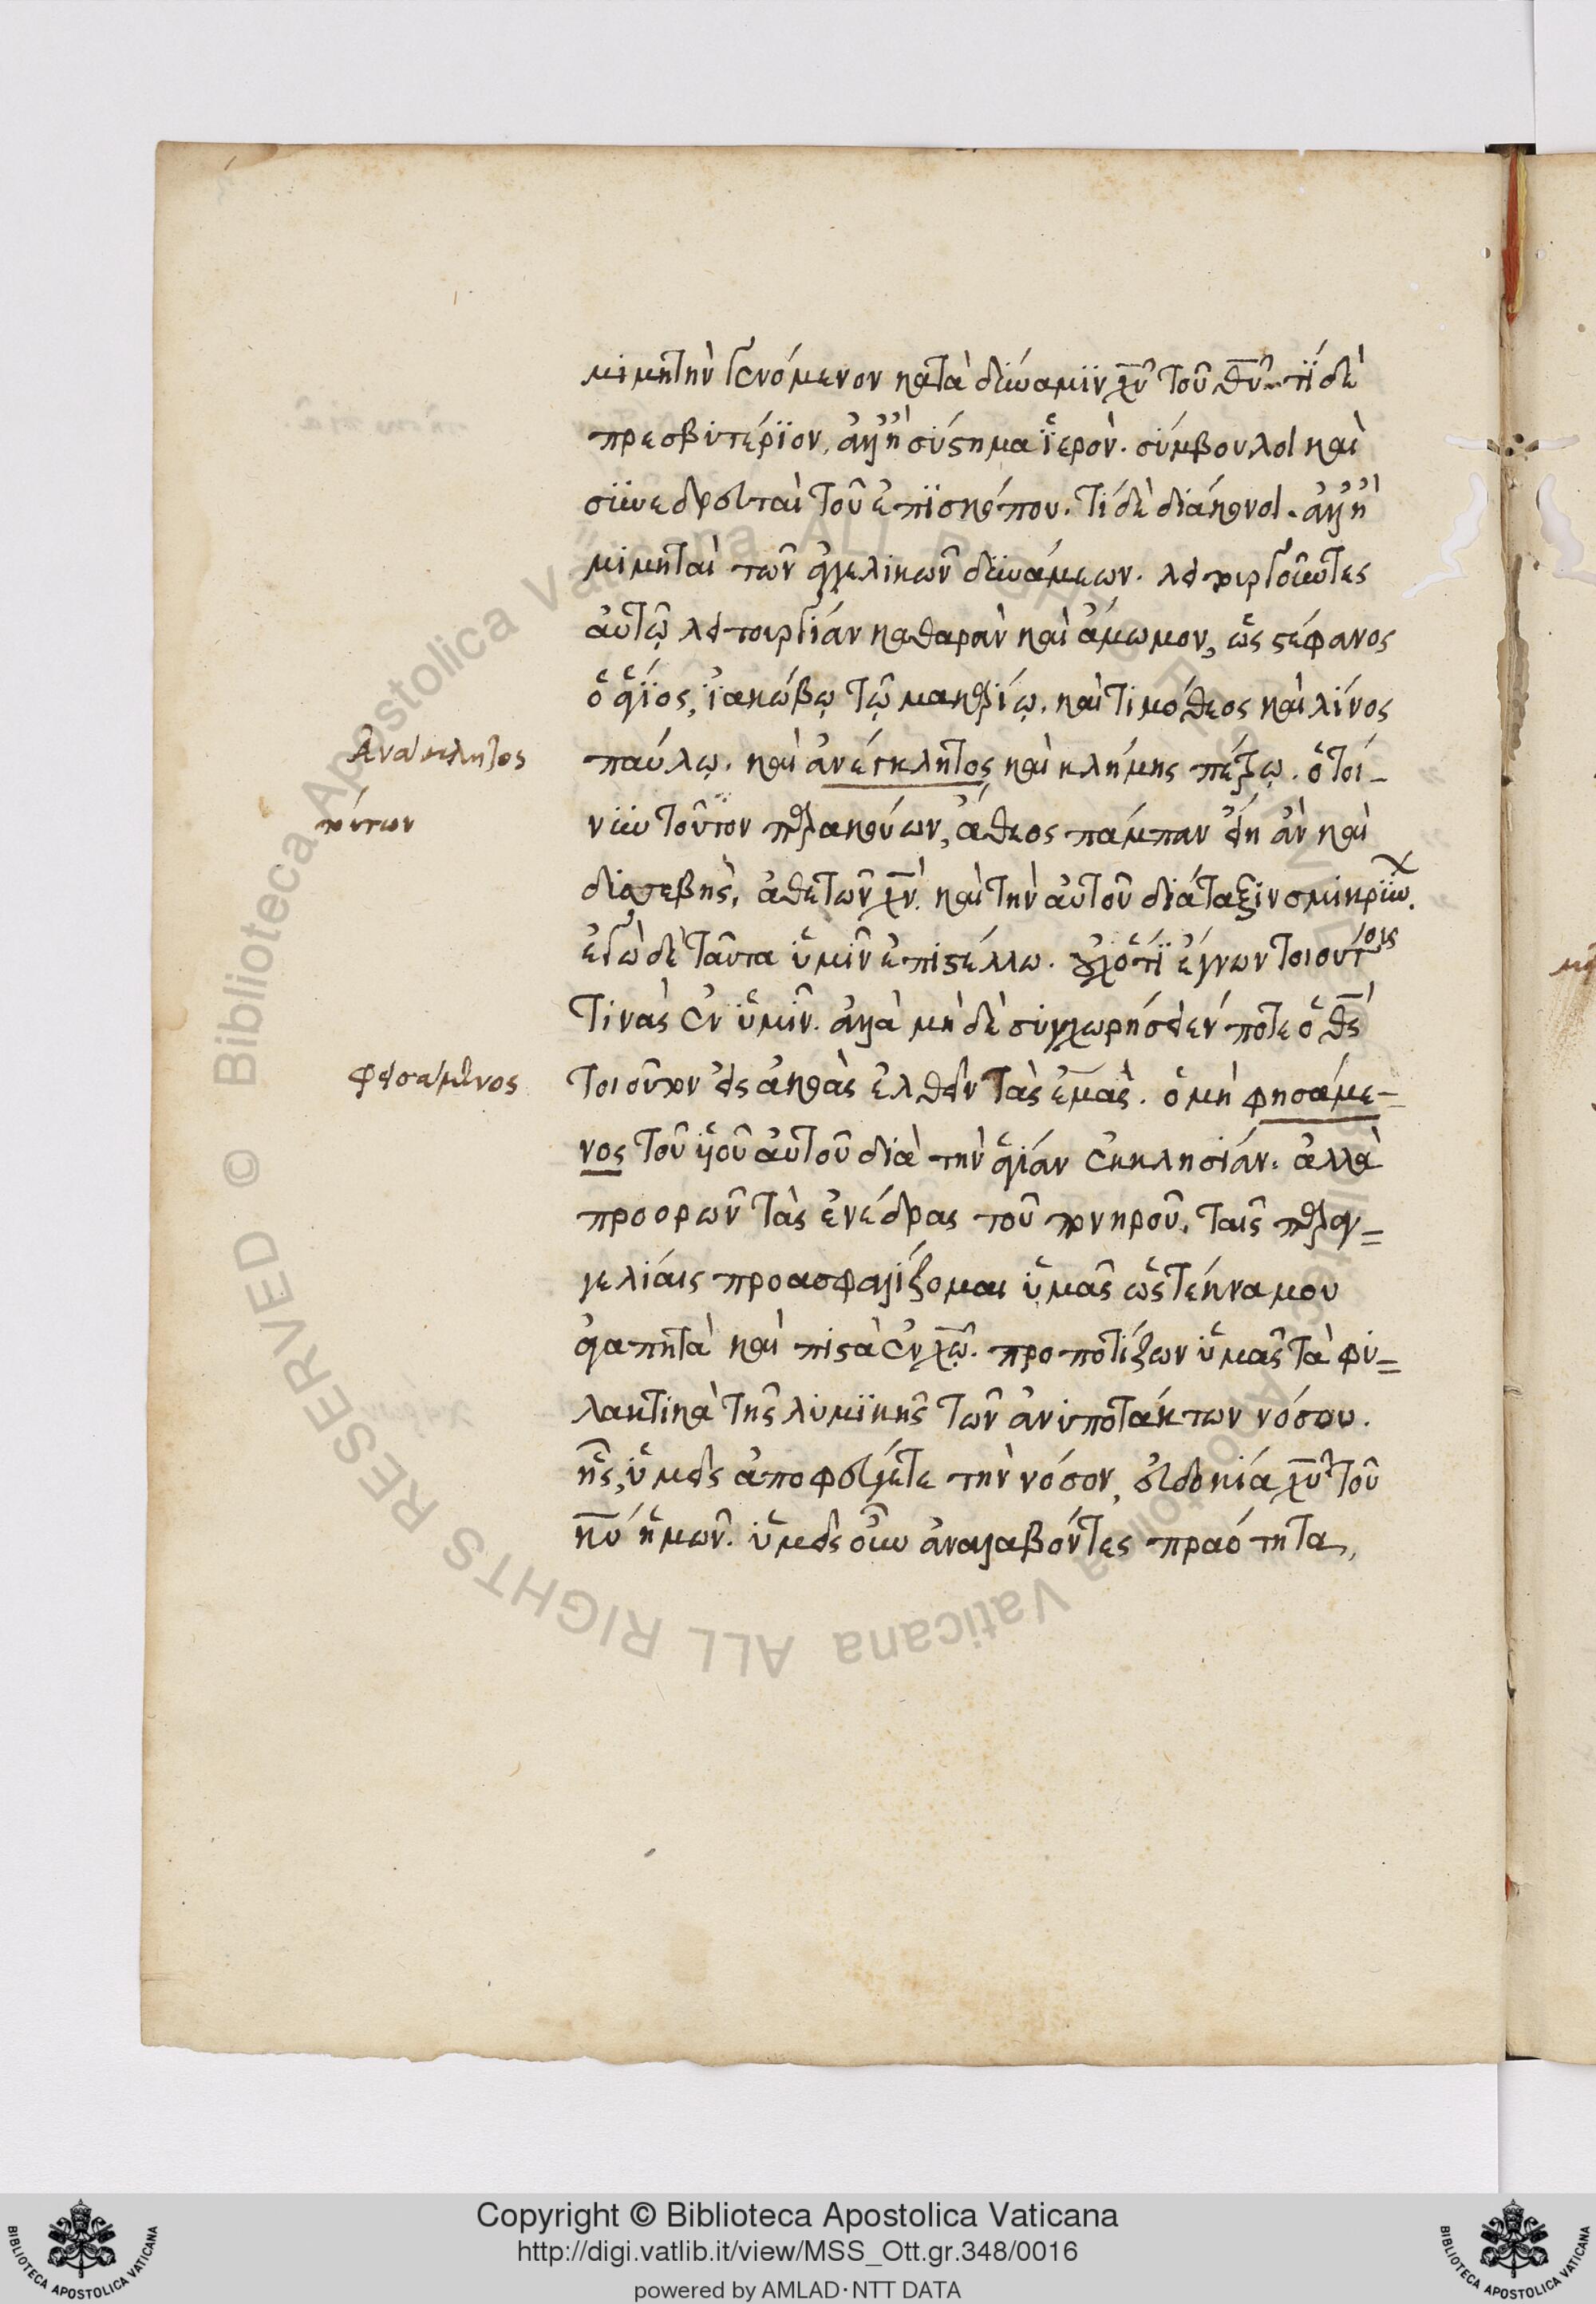 μιμητὴν γενόμενον κατὰ δύναμιν χῦ τοῦ θῦ. τί δὲ
πρεσβυτέριον, ἀλλ' ἢ σύστημα ἱερὸν. σύμβουλοι καὶ
συνεδρευταὶ τοῦ ἐπισκόπου. τί δὲ διάκονοι. ἀλλ' ἢ
μιμηταὶ τῶν ἀγγελικῶν δυνάμεων. λειτουργοῦντες
αὐτῷ λειτουργίαν καθαρὰν καὶ ἄμωμον, ὡς στέφανος
ὁ ἅγιος, ἰακώβῳ τῷ μακαρίῳ. καὶ τιμόθεος καὶ λίνος
Ἀνάκλητος
παύλῳ. καὶ ἀνέγκλητος καὶ κλήμης πέτρῳ. ὁ τοί-
τούτων
νυν τοῦτον παρακούων, ἄθεος πάμπαν εἴη ἂν καὶ
δυσσεβὴς, ἀθετῶν χν̀. καὶ τὴν αὐτοῦ διάταξιν σμικρύνων.
ἐγὼ δὲ ταῦτα ὑμῖν ἐπιστέλλω. οὐχ ὅτι ἔγνων τοιούτους
τινὰς ἐν ὑμῖν. ἀλλὰ μὴ δὲ συγχωρήσειέν ποτε ὁ θς̀
φεισάμενος
τοιοῦτον εἰς ἀκοὰς ἐλθεῖν τὰς ἐμάς. ὁ μὴ φησάμε-
νος τοῦ υἱοῦ αὐτοῦ διὰ τὴν ἁγίαν ἐκκλησίαν. ἀλλὰ
προορῶν τὰς ἐνέδρας τοῦ πονηροῦ, ταῖς παραγ=
γελίαις προασφαλίζομαι ὑμᾶς ὡς τέκνα μου
ἀγαπητὰ καὶ πιστὰ ἐν χῶ. προποτίζων ὑμᾶς τὰ φυ=
λακτικὰ τῆς λυμικῆς τῶν ἀνυποτάκτων νόσου.
ἧς, ὑμεῖς ἀποφεύγετε τὴν νόσον, εὐδοκία χῦ τοῦ
κυ ἡμῶν. ὑμεῖς οὖν ἀναλαβόντες πραότητα,
Copyright © Biblioteca Apostolica Vaticana
http://digi.vatlib.it/view/MSS_Ott.gr.348/0016
powered by AMLAD·NTT DATA